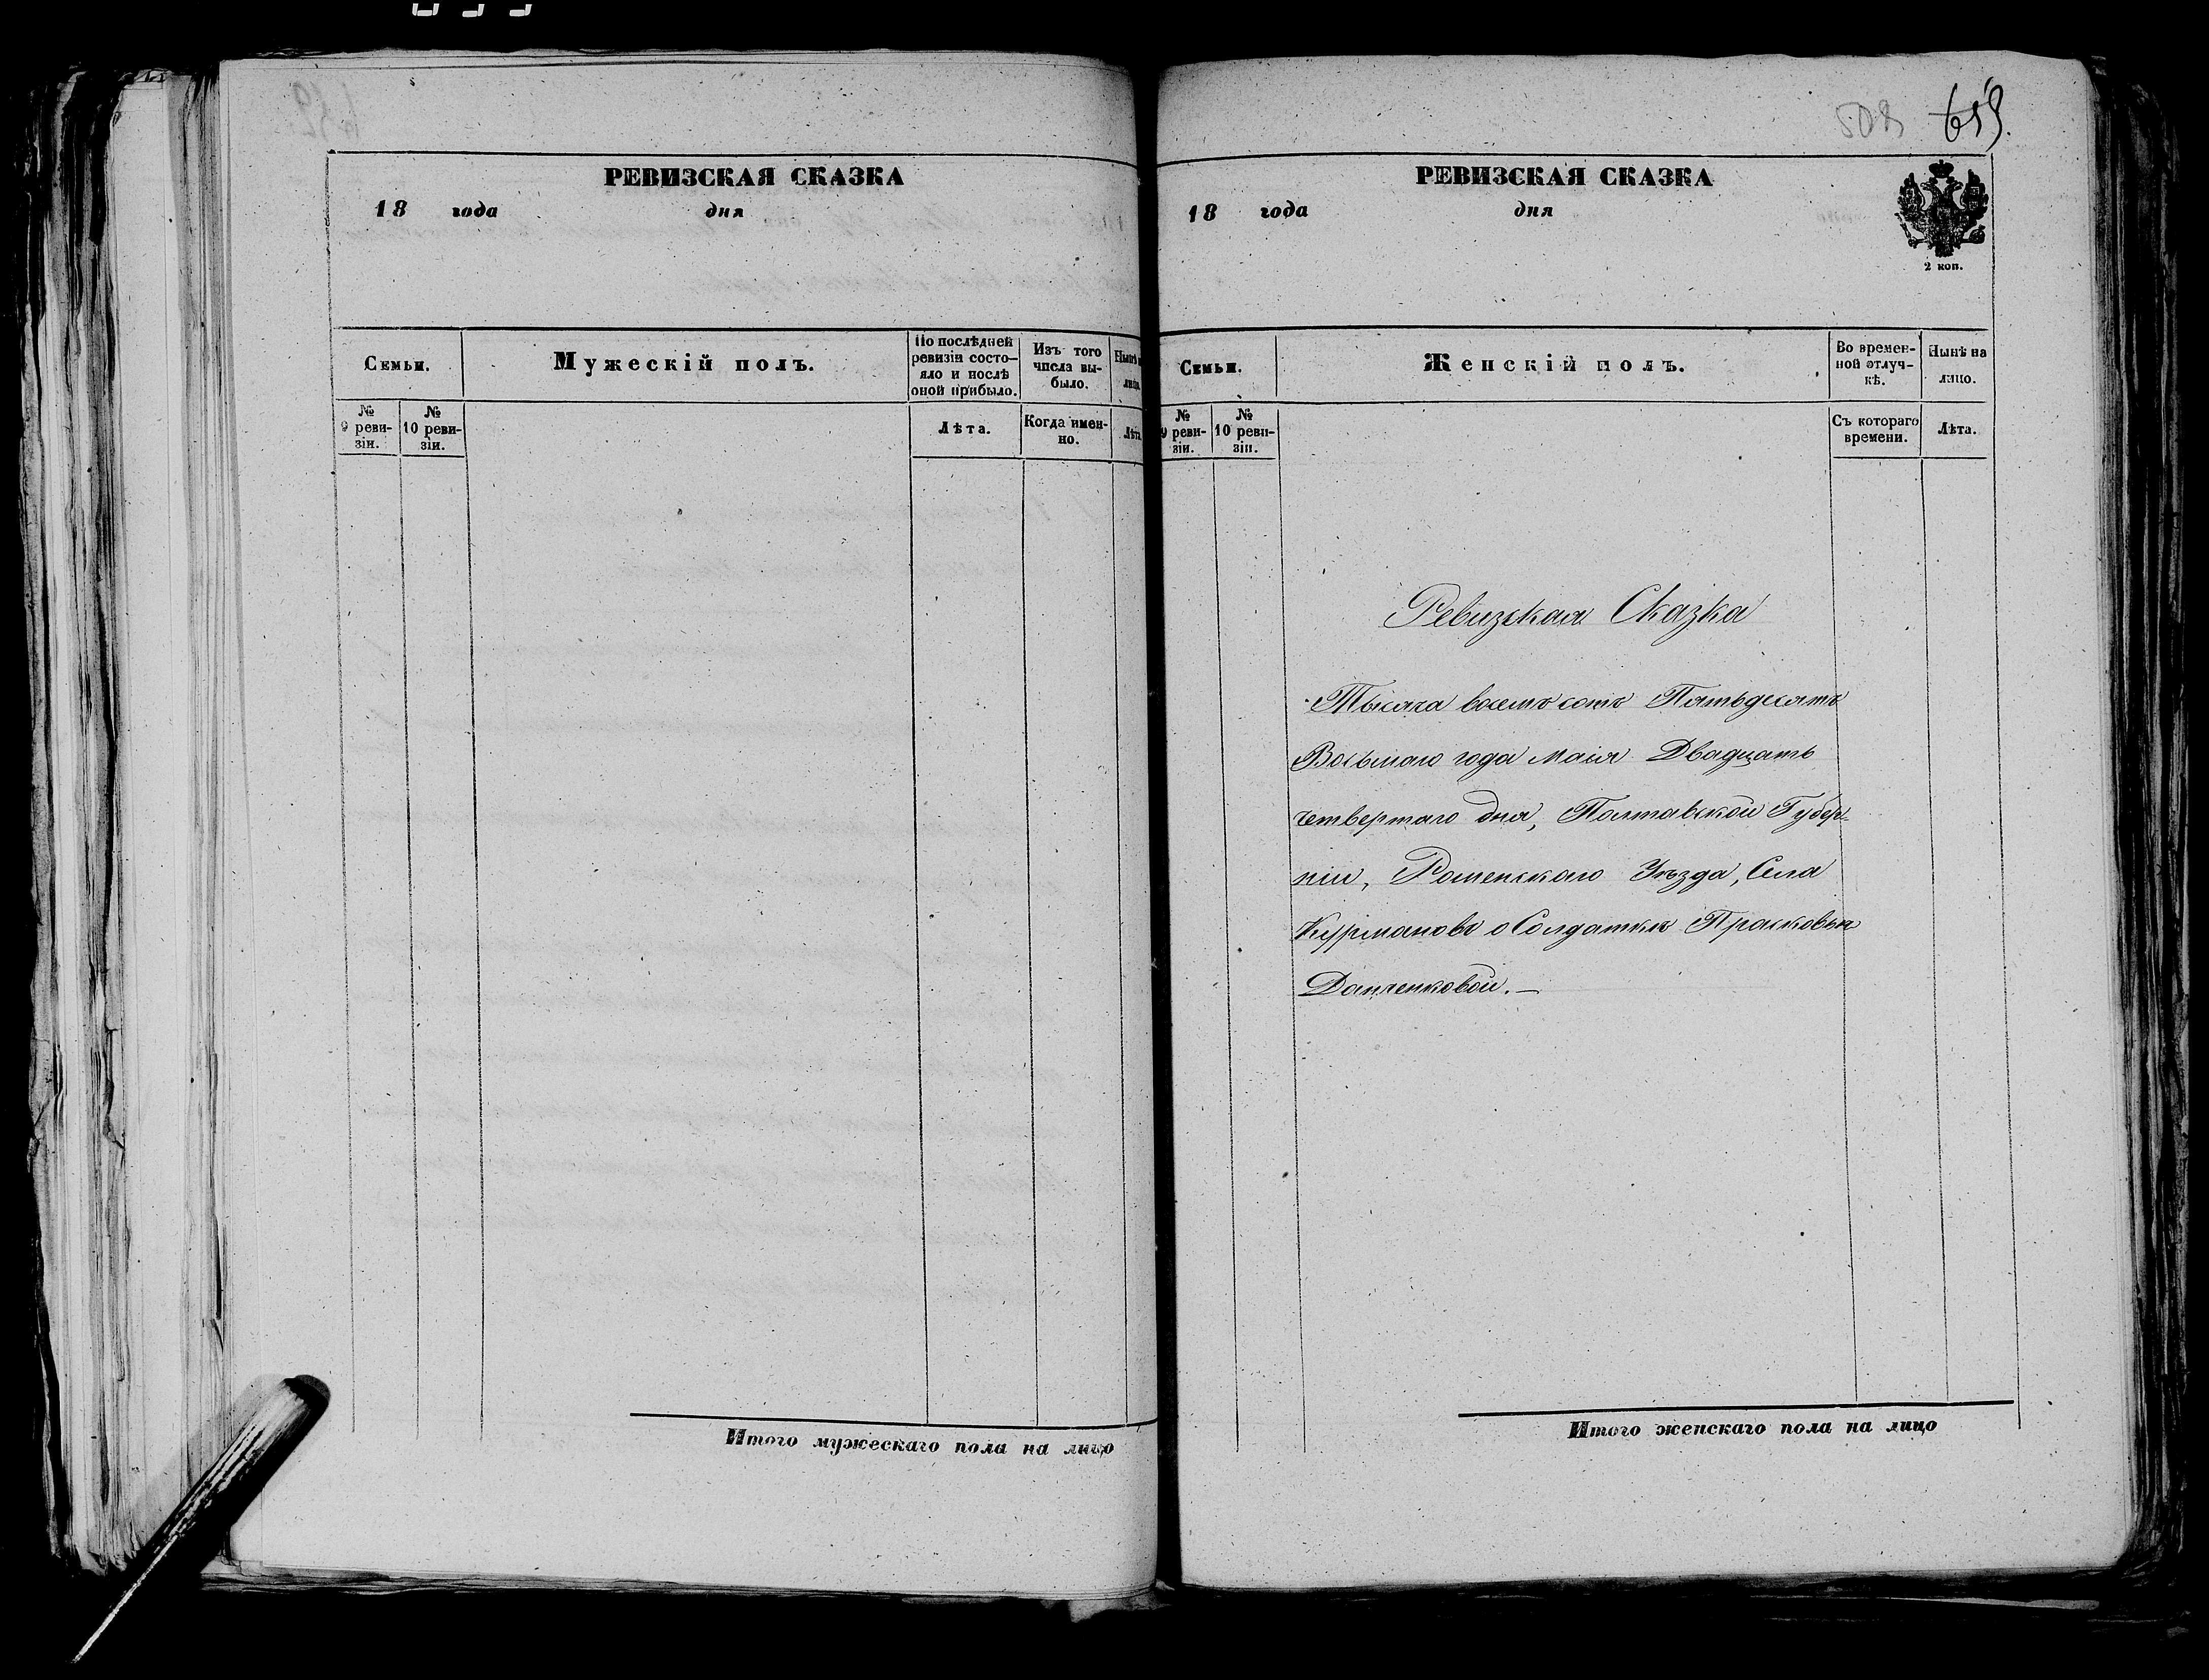 РЕВИЗСКАЯ СКАЗКА
18 года дня
Семьи.
Мужескій полъ.
По послѣдней ревизіи состо-
яло и послѣ
оной прибыло.
Изъ того
числа вы-
было.
№
9 реви-
зіи.
№
10 реви-
зіи.
Лѣта.
Когда имен-
но.
Лѣта
Итого мужескаго пола на лицо
508 659.
РЕВИЗСКАЯ СКАЗКА
18 года дня
2 коп.
Семьи.
Женскій полъ.
Во времен-
ной отлуч-
кѣ.
Нынѣ на
лицо.
№
9 реви-
зіи.
№
10 реви-
зіи.
Съ котораго
времени.
Лѣта.
Ревизская Сказка
Тысяча восемъ сотъ Пятьдесятъ
Восьмаго года маія Двадцать
четвертаго дня, Полтавской Губер-
ніи, Роменскаго Уѣзда, Села
Курмановъ о Солдаткѣ Прасковьи
Данченковой. —
Итого женскаго пола на лицо